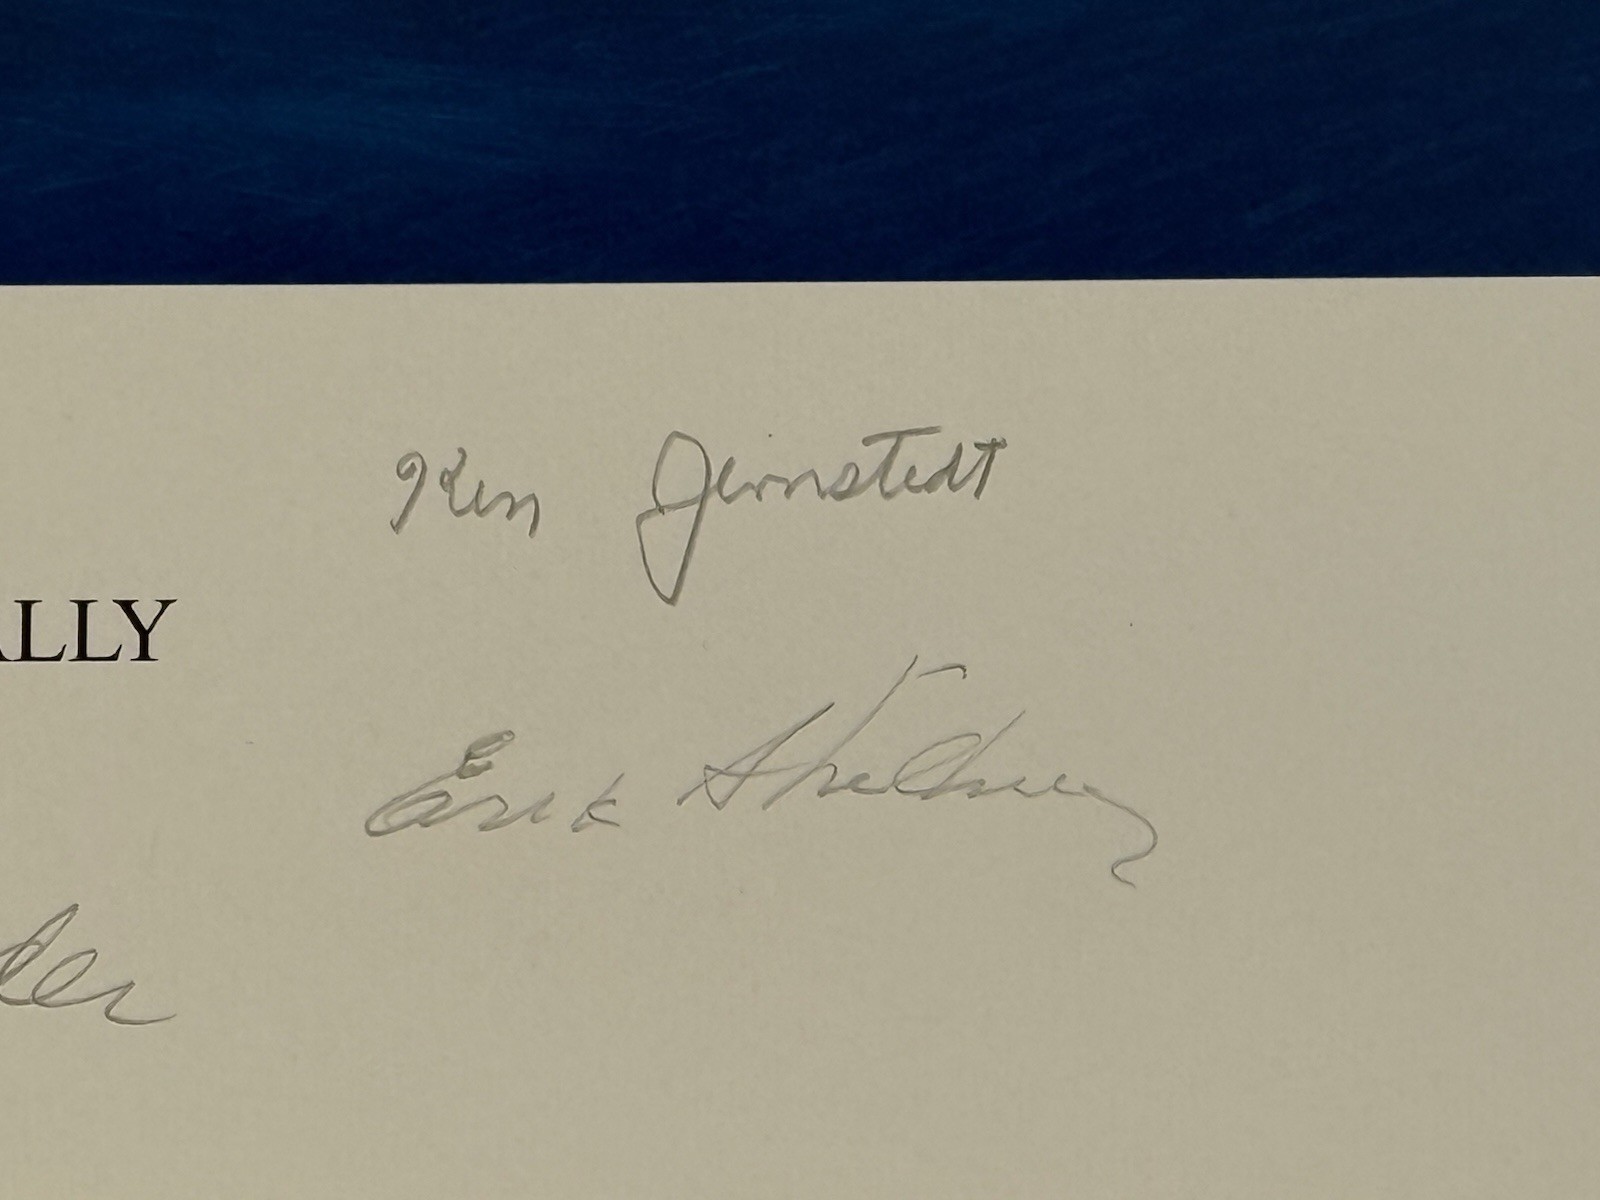 Ken Jernstedt
ALLY
Erik Shilling